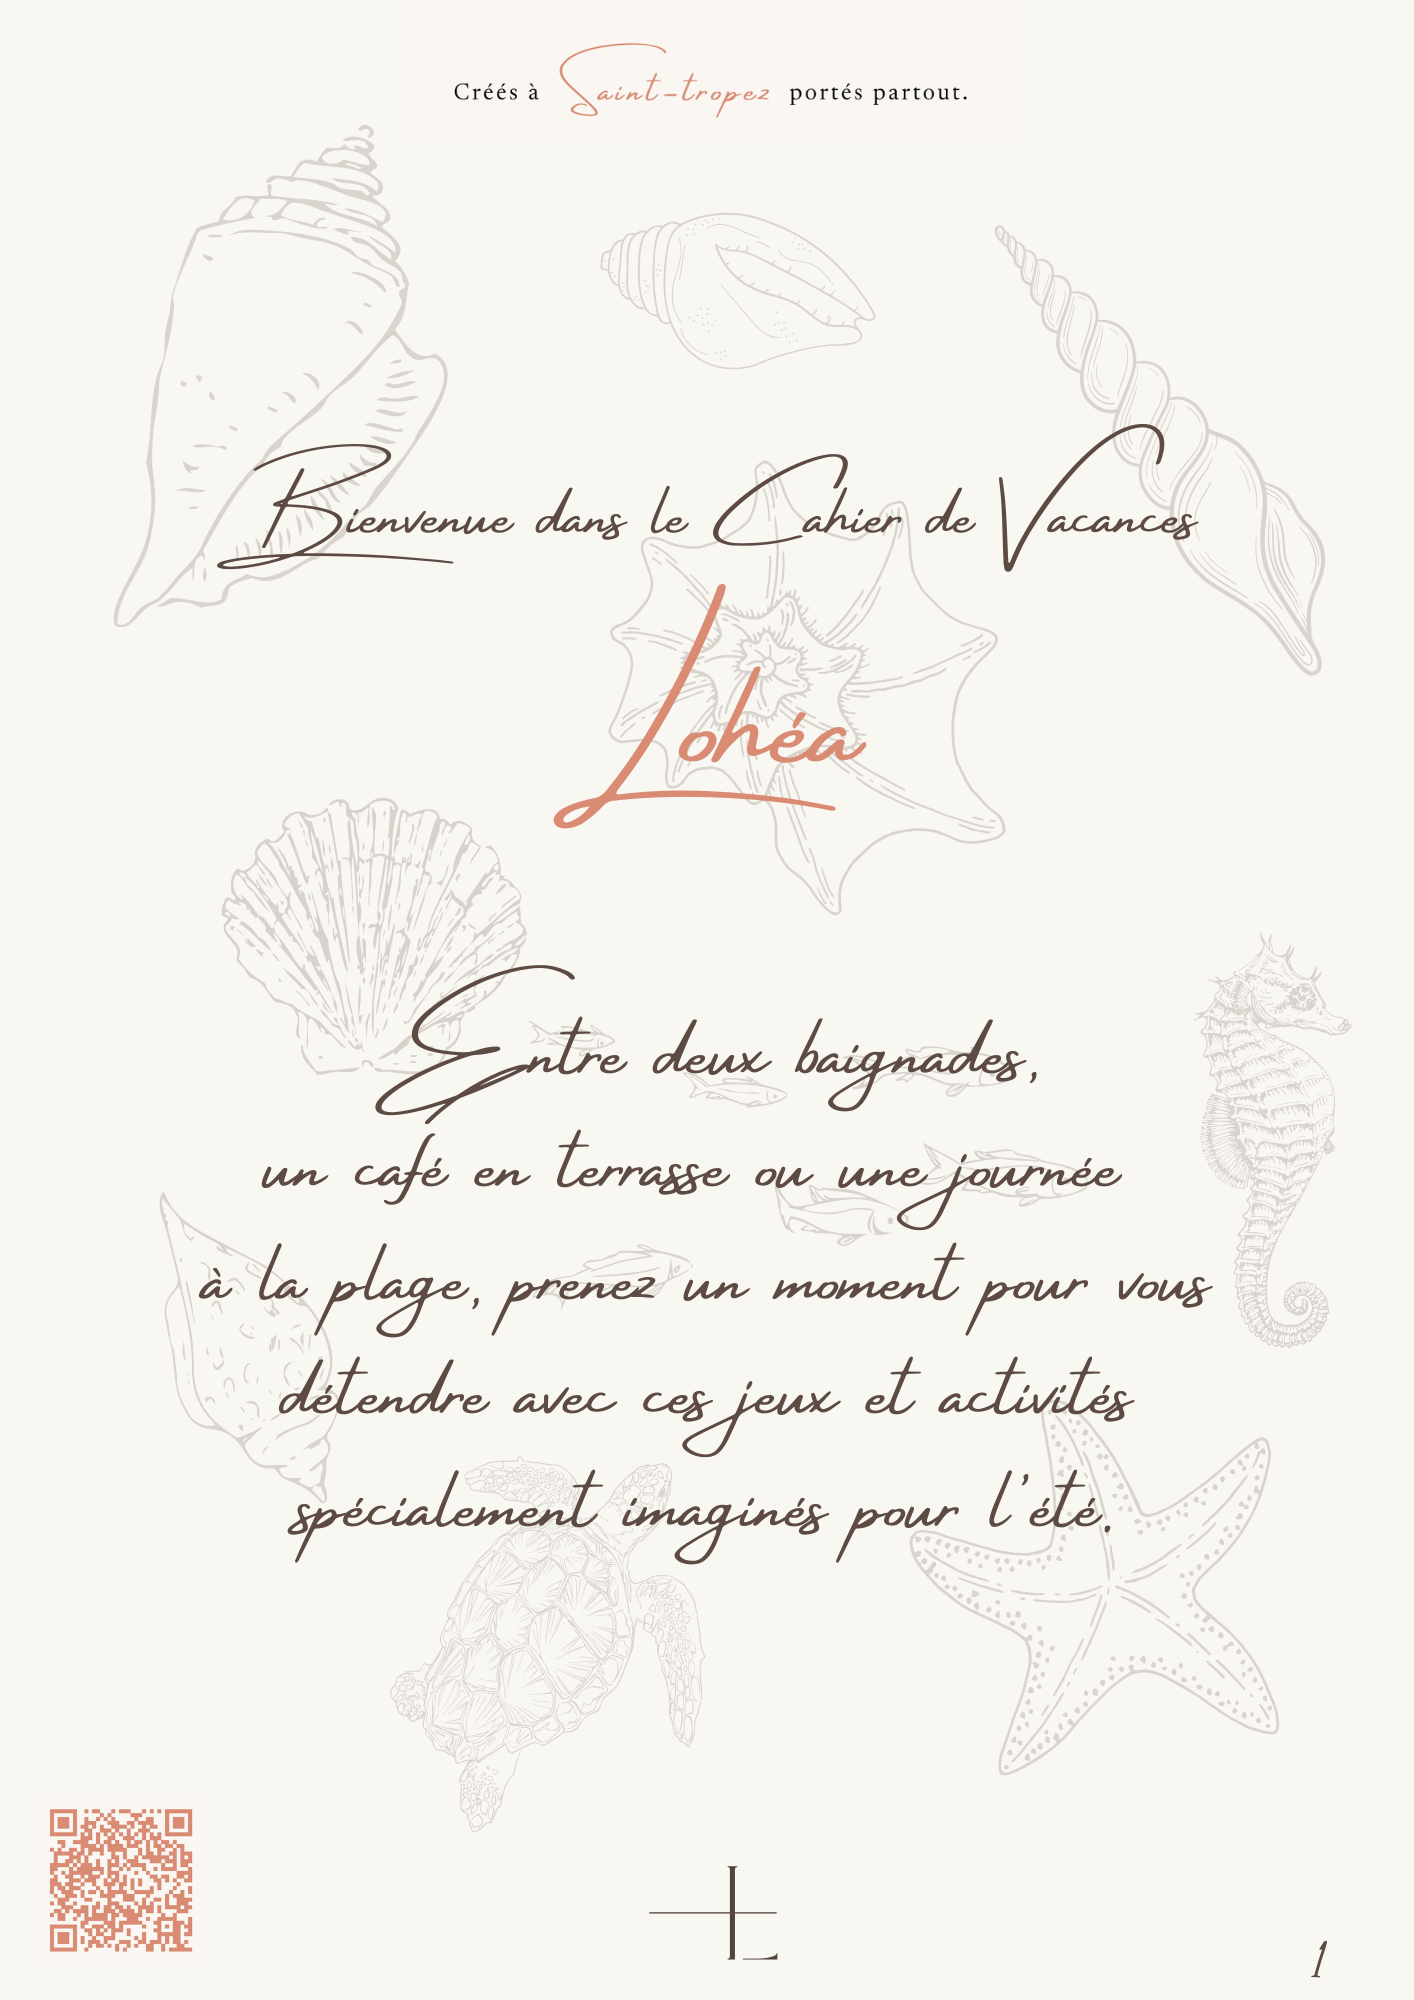 Créés à Saint-tropez portés partout.
Bienvenue dans le Cahier de Vacances
Lohéa
Entre deux baignades,
un café en terrasse ou une journée
à la plage, prenez un moment pour vous
détendre avec ces jeux et activités
spécialement imaginés pour l'été.
L
1